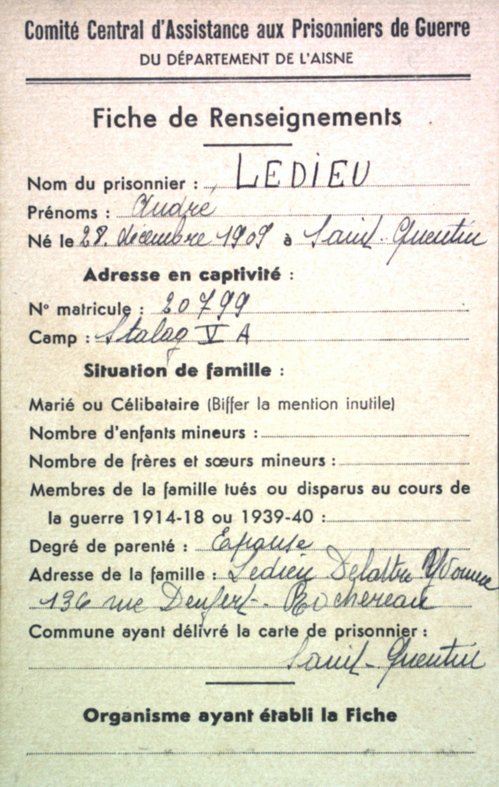 Comité Central d'Assistance aux Prisonniers de Guerre
DU DÉPARTEMENT DE L'AISNE
Fiche de Renseignements
Nom du prisonnier : LEDIEU
Prénoms : André
Né le 28 décembre 1909 à Saint-Quentin
Adresse en captivité :
N° matricule : 20799
Camp : Stalag V A
Situation de famille :
Marié ou Célibataire (Biffer la mention inutile)
Nombre d'enfants mineurs :
Nombre de frères et sœurs mineurs :
Membres de la famille tués ou disparus au cours de
la guerre 1914-18 ou 1939-40 :
Degré de parenté : Epouse
Adresse de la famille : Ledieu Delattre Yvonne
136 rue Denfert-Rochereau
Commune ayant délivré la carte de prisonnier :
Saint-Quentin
Organisme ayant établi la Fiche